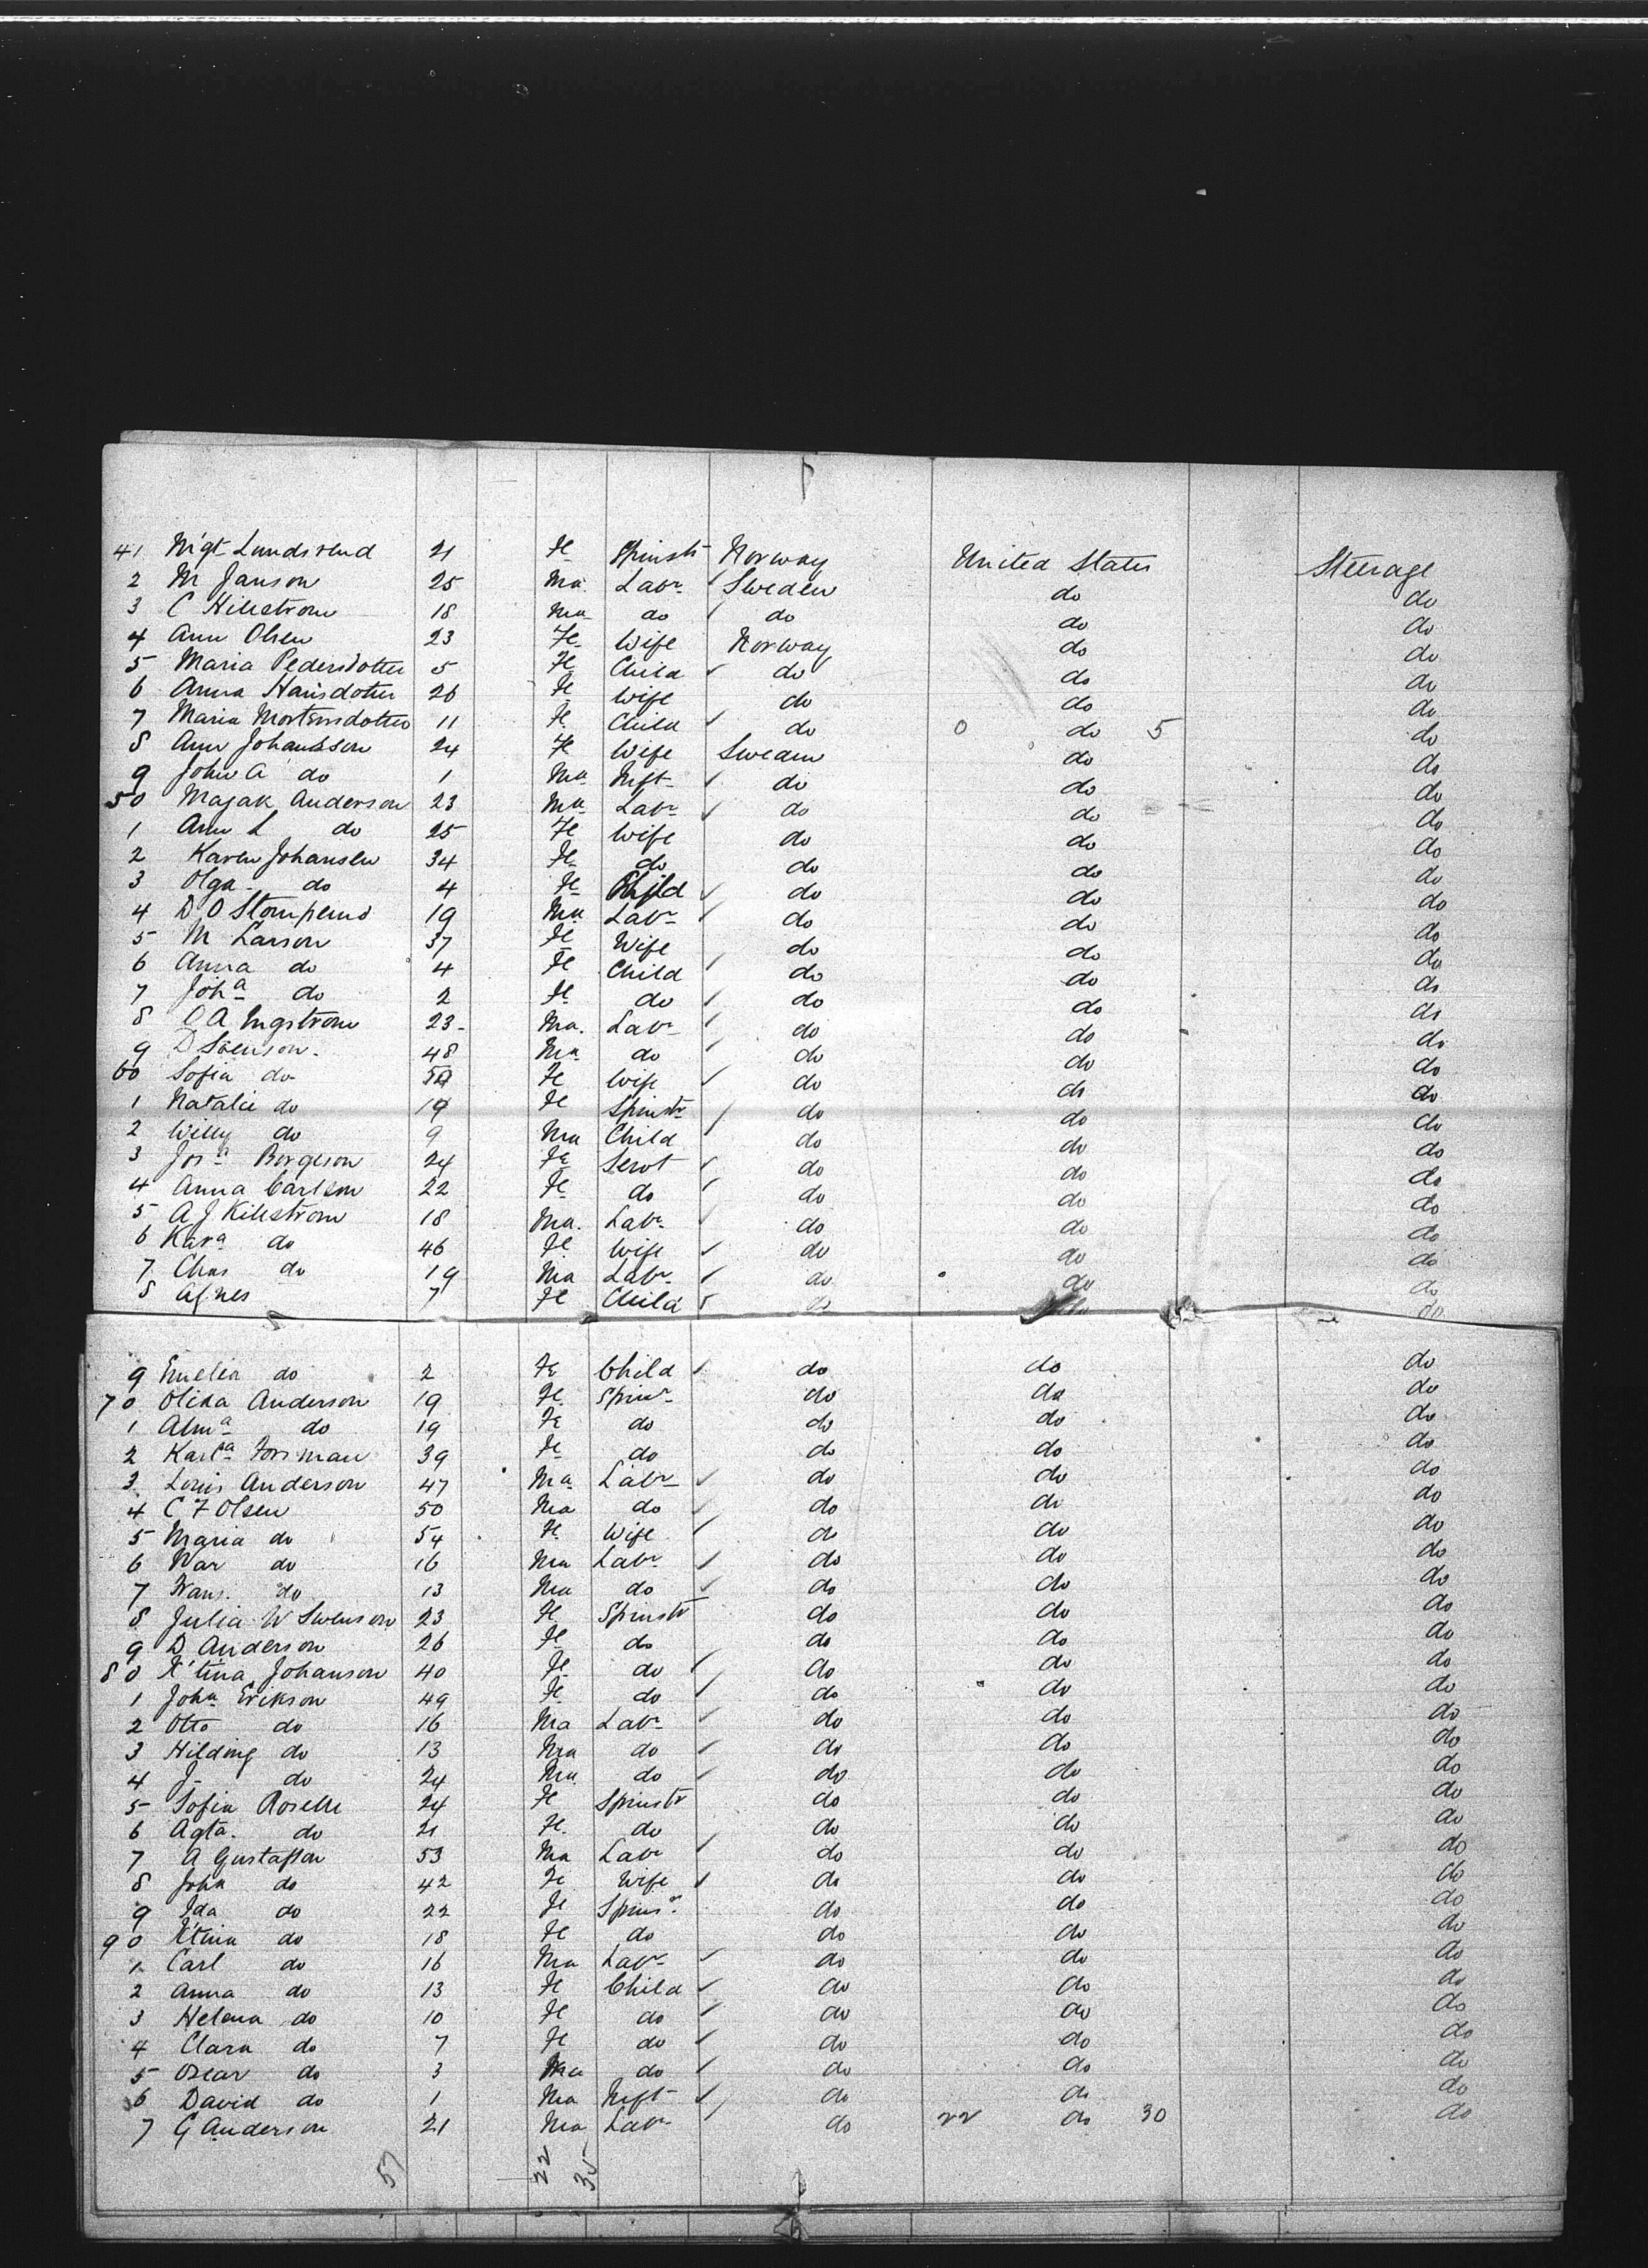 41 Mgt Lundsrend 21 Fe Spinstr Norway United States Steerage
2 M Janson 25 Ma. Labr Sweden do do
3 C Hillstrom 18 Ma do do do do
4 Ann Olsen 23 Fe Wife Norway do do
5 Maria Pedersdotter 5 Fe Child do do do
6 Anna Hansdotter 26 Fe Wife do do do
7 Maria Mortensdotter 11 Fe Child do 0 do 5 do
8 Ann Johansson 24 Fe Wife Sweden do do
9 John A do 1 Ma Inft do do do
50 Majak Anderson 23 Ma Labr do do do
1 Ann L do 25 Fe Wife do do do
2 Karen Johansen 34 Fe do do do do
3 Olga do 4 Fe Child do do do
4 D O 19 Ma Labr do do do
5 M Larson 37 Fe Wife do do do
6 Anna do 4 Fe Child do do do
7 Joha do 2 Fe do do do do
8 O A Engstrom 23 Ma. Labr do do do
9 D Svenson. 48 Ma do do do do
60 Sofia do Fe Wife do do do
1 Natalie do 19 Fe Spinstr do do do
2 Willy do 9 Ma Child do do do
3 Josa Borgeson 24 Fe Servt do do do
4 Anna Carlson 22 Fe do do do do
5 A J Killstrom 18 Ma. Labr do do do
6 Kara do 46 Fe Wife do do do
7 Chas do 19 Ma Labr do do do
8 Agnes 7 Fe Child do do do
9 Emelia do 2 Fe Child do do do
70 Olida Anderson 19 Fe Spinr do do do
1 Alma do 19 Fe do do do do
2 Karla Forsman 39 Fe do do do do
3 Louis Anderson 47 Ma Labr do do do
4 C F Olsen 50 Ma do do do do
5 Maria do 54 Fe Wife do do do
6 War do 16 Ma Labr do do do
7 Hans. do 13 Ma do do do do
8 Julia W Swenson 23 Fe Spinstr do do do
9 D Anderson 26 Fe do do do do
80 K'tina Johanson 40 Fe do do do do
1 Joha Erikson 49 Fe do do do do
2 Otto do 16 Ma Labr do do do
3 Hilding do 13 Ma do do do do
4 J do 24 Ma do do do do
5 Sofia Roselle 24 Fe Spinstr do do do
6 Agta. do 21 Fe do do do do
7 A Gustafson 53 Ma Labr do do do
8 Joha do 42 Fe Wife do do do
9 Ida do 22 Fe Spinsr do do do
90 K'tina do 18 Fe do do do do
1 Carl do 16 Ma Labr do do do
2 Anna do 13 Fe Child do do do
3 Helena do 10 Fe do do do do
4 Clara do 7 Fe do do do do
5 Oscar do 3 Ma do do do do
6 David do 1 Ma Inft do do do
7 G Anderson 21 Ma Labr do 22 do 30 do
57 22 35